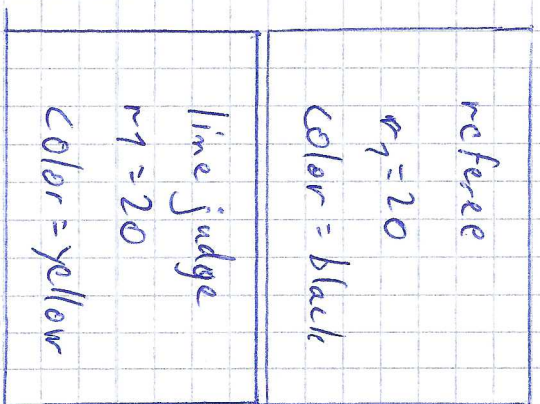 referee
r1 = 20
color = black
line judge
r1 = 20
color = yellow